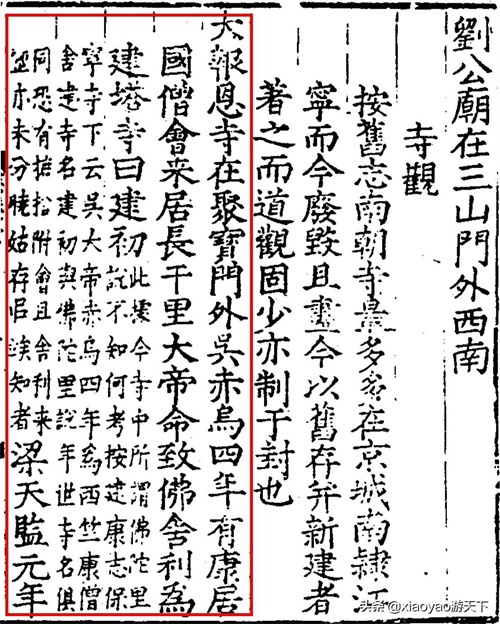 劉公廟在三山門外西南
寺觀
按舊志南朝寺最多多在京城南隸江
寧而今廢毀且盡今以舊存并新建者
著之而道觀固少亦制于封也
大報恩寺在聚寶門外吳赤烏四年有康居
國僧會来居長干里大帝命致佛舍利爲
建塔寺曰建初此據今寺中所謂佛陀里
說不如何考按建康志保
寧寺下云吳大帝赤烏四年爲西竺康僧
舍建寺名建初與佛陀里說年世寺名俱
同恐有摭拾附會且舍利来
亦未分曉姑存召俟知者梁天監元年
头条 @xiaoyao游天下